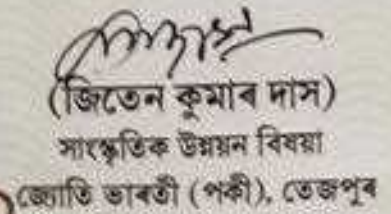 (জিতেন কুমাৰ দাস)
সাংস্কৃতিক উন্নয়ন বিষয়া
জ্যোতি ভাৰতী (পকী), তেজপুৰ